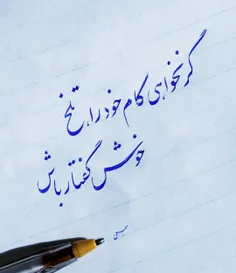 گر نخواهی کام خود را، تلخ
خوش گفتار باش